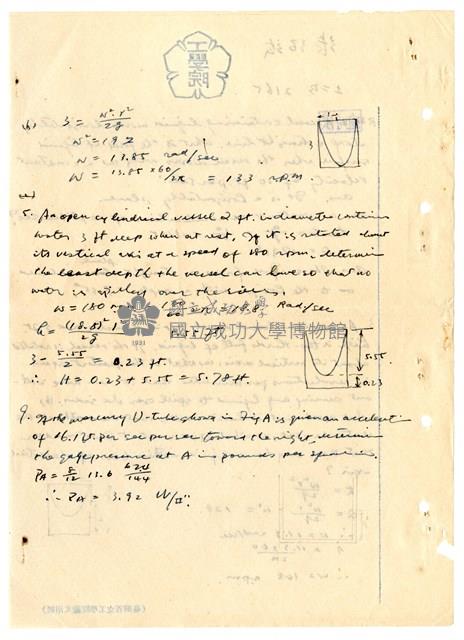 工學院
(b) 3 = w²r²/2g
w² = 192
w = 13.85 rad/sec
w = 13.85 × 60/2π = 133 r.p.m.
5. An open cylindrical vessel 2 ft. in diameter contains
water 3 ft deep when at rest. If it is rotated about
its vertical axis at a speed of 180 rpm, determine
the least depth the vessel can have so that no
water is spilled over the sides.
= 18.8 Rad/sec
國立成功大學
國立成功大學博物館
1931
3 - 5.55/2 = 0.23 ft.
∴ H = 0.23 + 5.55 = 5.78 ft.
5.55
0.23
9. If the mercury U-tube shown in Fig A is given an acceleration
of 16.1 ft. per sec per sec toward the right, determine
the gage pressure at A in pounds per sq. in.
PA = 8/12 13.6 62.4/144
∴ PA = 3.92 #/□".